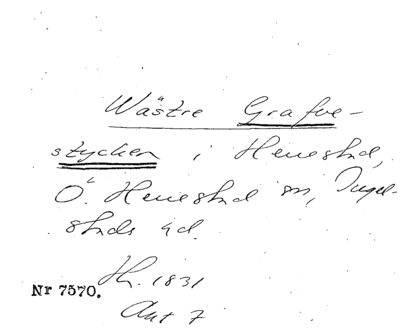 Wästre Grafve-
stycken i Henestad,
Ö. Henestad sn, Ingel-
stads hd.
Th. 1831
Nr 7570.
Akt 7